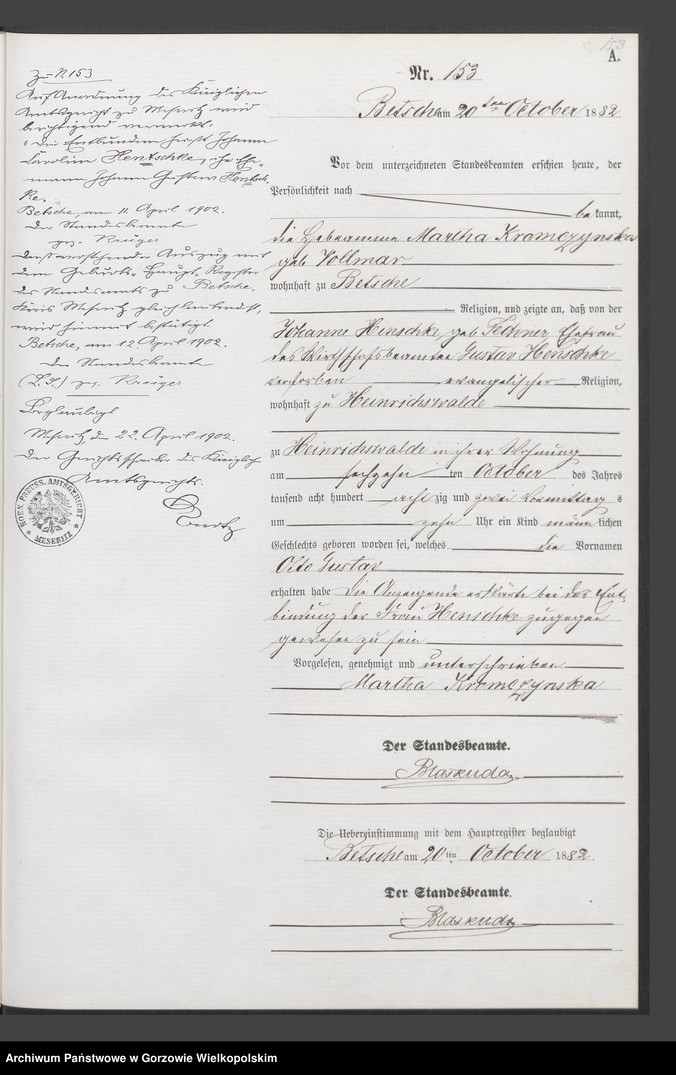 153
A.
Nr. 153
Betsche am 20ten October 1882
Vor dem unterzeichneten Standesbeamten erschien heute, der
Persönlichkeit nach
be kannt,
die Hebeamme Martha Kromczynska
geb Vollmar
wohnhaft zu Betsche
Religion, und zeigte an, daß von der
Johanne Henschke geb Fechner Ehefrau
des Wirthschaftsbeamten Gustav Henschke
evangelischer Religion,
wohnhaft zu Heinrichswalde
zu Heinrichswalde in ihrer Wohnung
am sechzehn ten October des Jahres
tausend acht hundert acht zig und zwei Vormittag s
um zehn Uhr ein Kind männ lichen
Geschlechts geboren worden sei, welches die Vornamen
Otto Gustav
erhalten habe Die Anzeigende erklärte bei der Ent-
bindung der Frau Henschke zugegen
gewesen zu sein
Vorgelesen, genehmigt und unterschrieben
Martha Kromczynska
Der Standesbeamte.
Blaskuda
Die Uebereinstimmung mit dem Hauptregister beglaubigt
Betsche am 20ten October 1882.
Der Standesbeamte.
Blaskuda
Zu N 153
Auf Anordnung des Königlichen
Amtsgerichts zu Meseritz wird
berichtigend vermerkt:
"Die Entbundene heißt Johanne
Caroline Hentschke, ihr Ehe-
mann Johann Gustav Hentsch-
ke.
Betsche, am 11. April 1902.
Der Standesbeamte
gez. Krüger
Daß vorstehender Auszug mit
dem Geburts-Haupt-Register
des Standesamts zu Betsche,
Kreis Meseritz gleichlautend ist,
wird hiermit bestätigt.
Betsche, am 12. April 1902.
Der Standesbeamte
(L.S.) gez. Krüger
Beglaubigt
Meseritz, den 22. April 1902.
Der Gerichtsschreiber des Königlichen
Amtsgerichts.
KOEN. PREUSS. AMTSGERICHT
* MESERITZ *
Archiwum Państwowe w Gorzowie Wielkopolskim